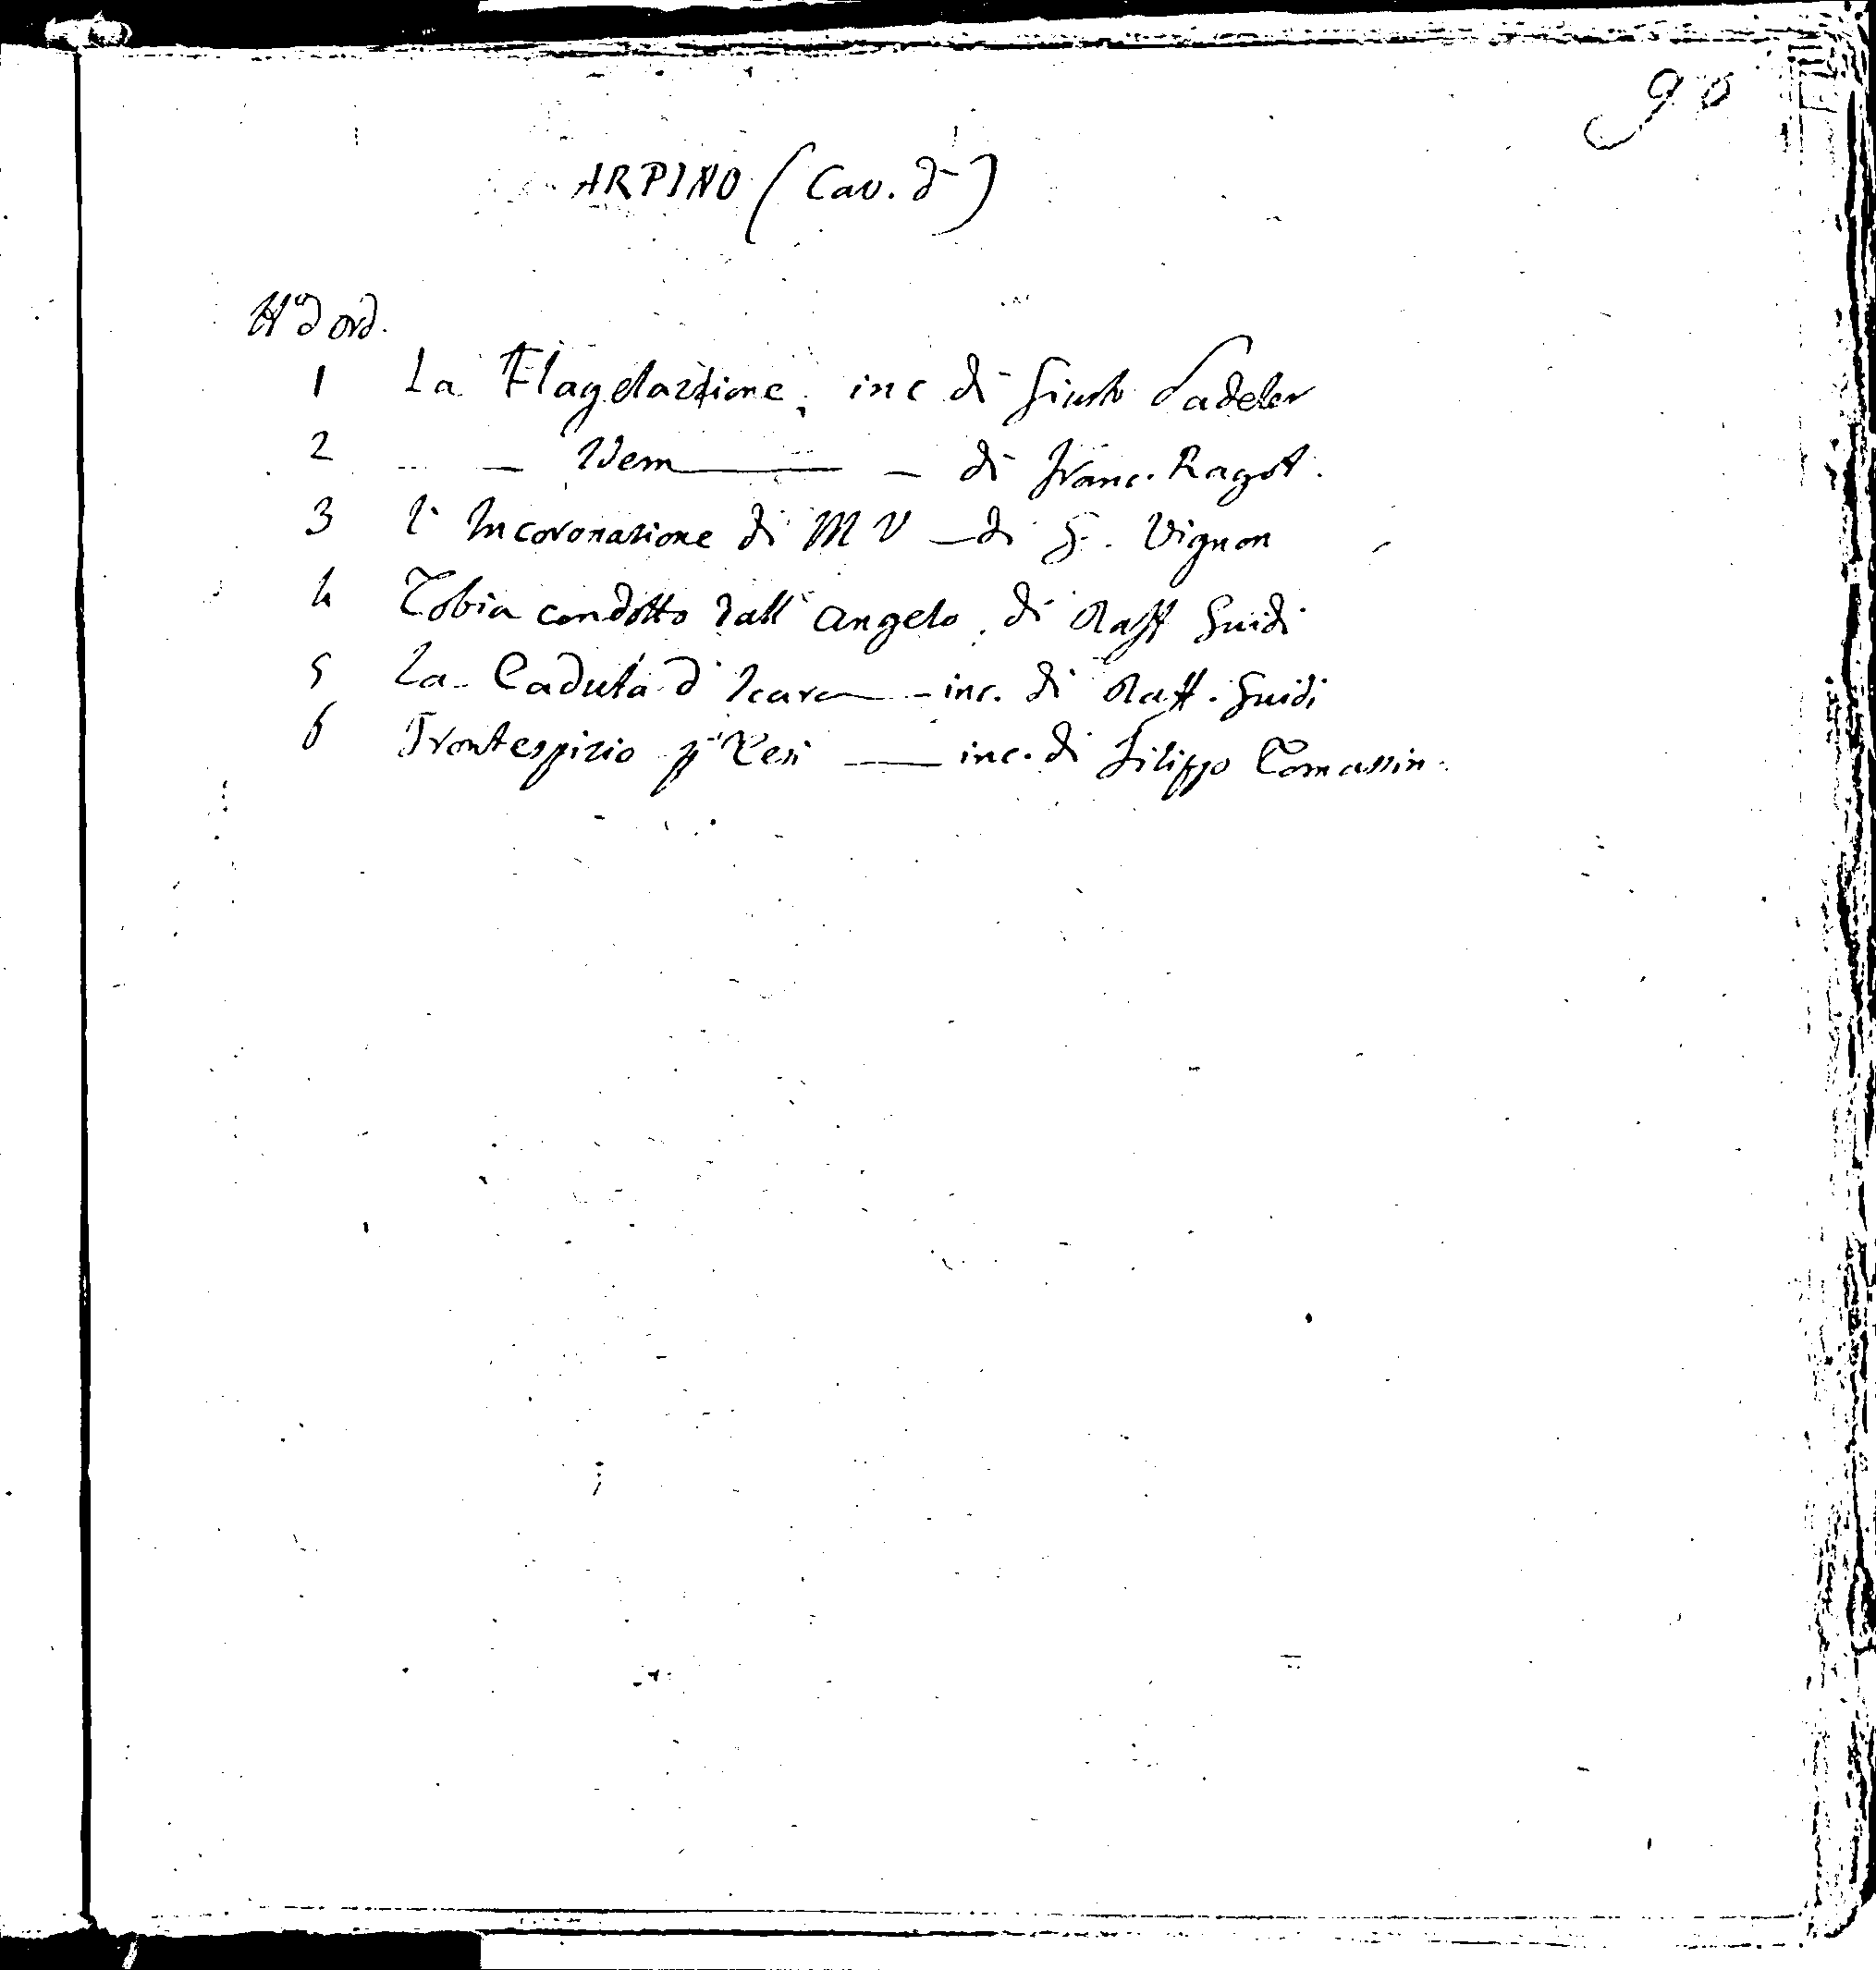 90
ARPINO (Cav. d')
N.º d ord.
1 La Flagelazione, inc di Giusto Sadeler
2 — Idem — — di Franc. Ragot.
3 l' Incoronazione di M V — di G. Vignon
4 Tobia condotto dall' angelo, di Raff Guidi
5 La Caduta d' Icaro — inc. di Raff. Guidi
6 Frontespizio p Tesi — inc. di Filippo Tomassin.